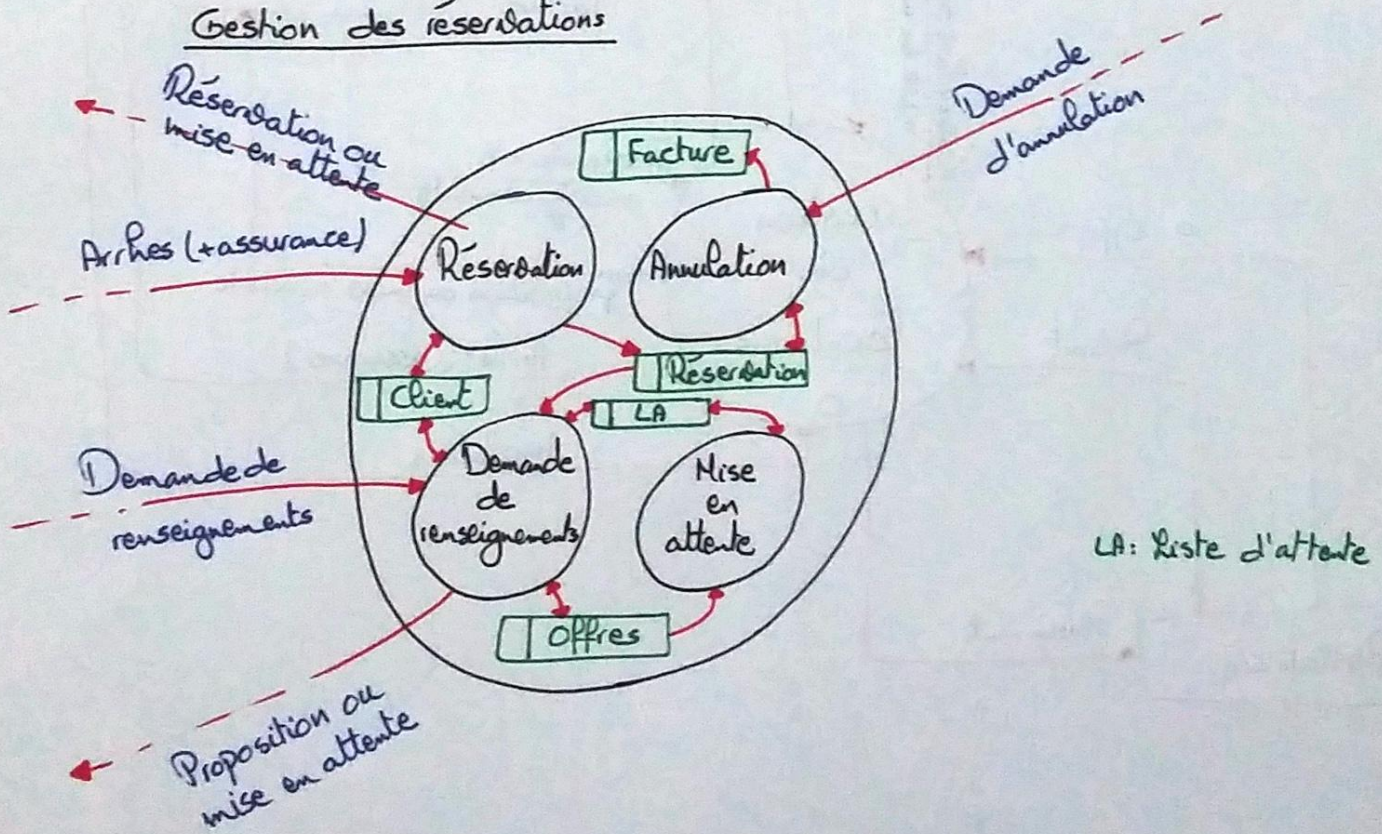 Gestion des réservations
Réservation ou
mise en attente
Demande
d'annulation
Facture
Arrhes (+assurance)
Réservation
Annulation
Réservation
Client
LA
Demande de
renseignements
Demande
de
renseignements
Mise
en
attente
LA: Liste d'attente
Offres
Proposition ou
mise en attente